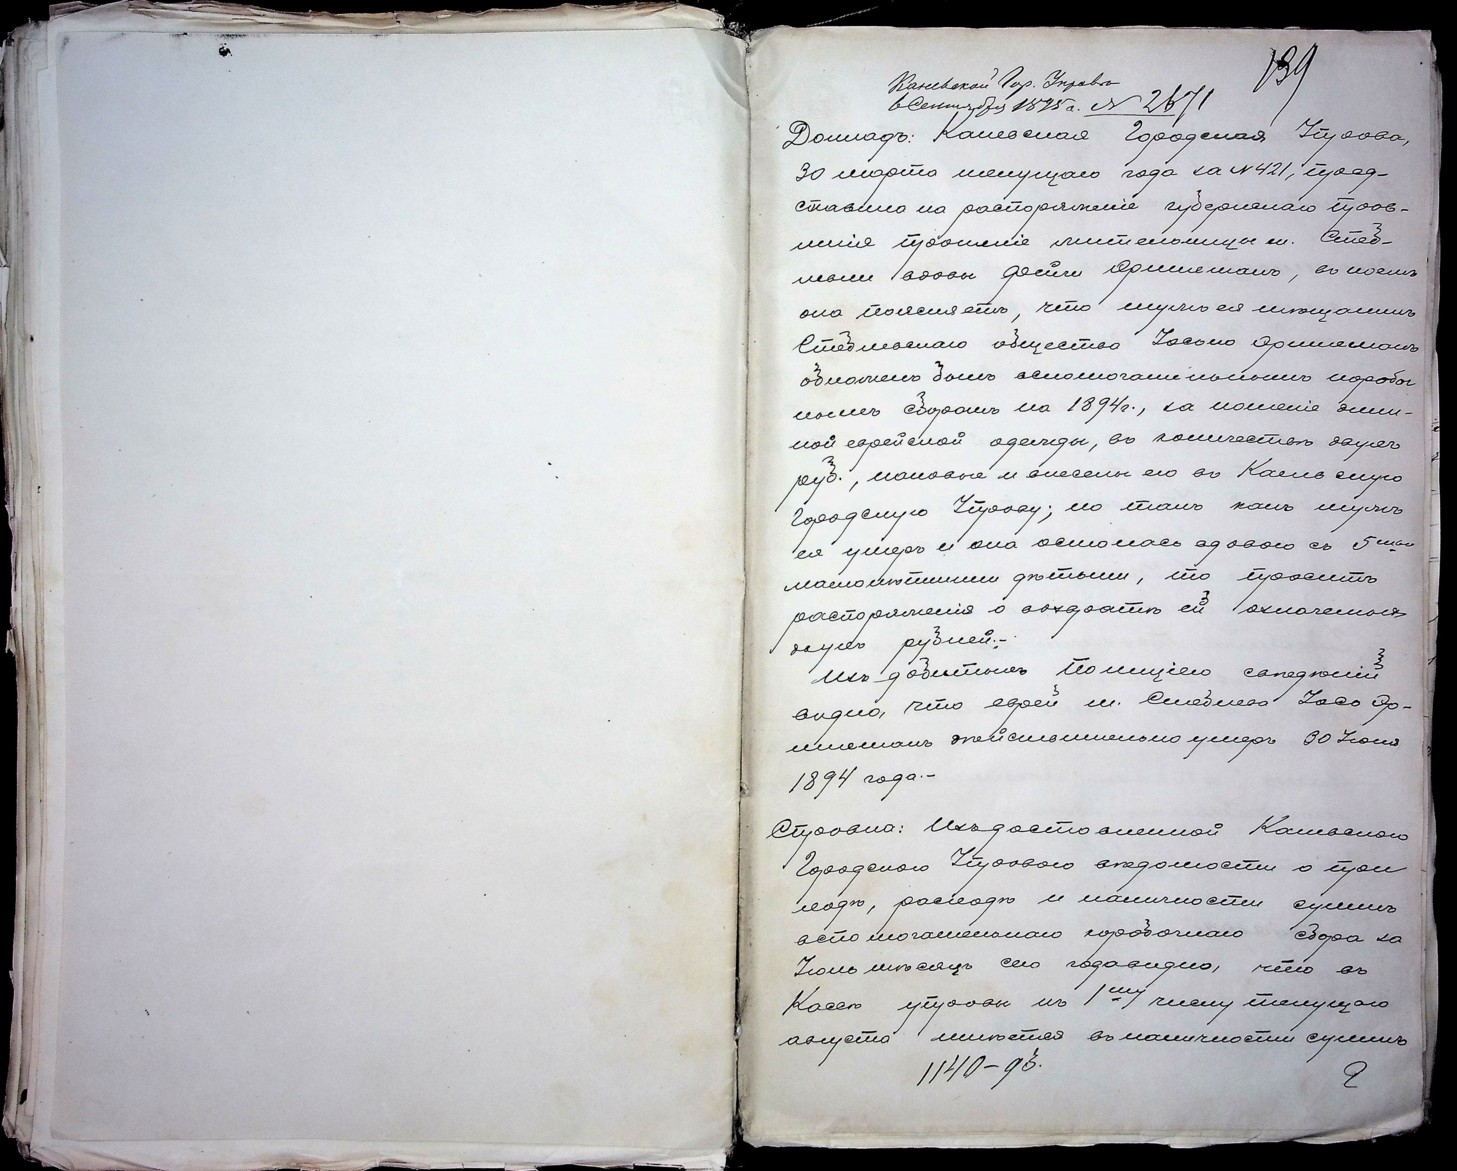 139
Каневской Гор. Управѣ
6 Сентября 1895 г. № 2671
Докладъ: Каневская Городская Управа,
30 марта текущаго года за № 421, пред-
ставила на распоряженіе губернскаго прав-
ленія прошеніе жительницы м. Стеб-
лева вдовы Фейги Оришеманъ, въ коемъ
она поясняетъ, что мужъ ея мѣщанинъ
Стеблевскаго общества Іосько Оришеманъ
обложенъ былъ вспомогательнымъ коробоч
нымъ сборомъ на 1894 г., за ношеніе
ной еврейской одежды, въ количествѣ двухъ
руб., каковые и внесены его въ Каневскую
Городскую Управу; но такъ какъ мужъ
ея умеръ и она осталась вдовою съ 5тью
малолѣтними дѣтьми, то проситъ
распоряженія о возвратѣ ей означенныхъ
двухъ рублей.-
Изъ добытыхъ Полиціею свѣдѣній
видно, что еврей м. Стеблева Іось Ор-
ишеманъ дѣйствительно умеръ 30 Іюня
1894 года.-
Справка: Изъ доставленной Каневскою
Городскою Управою вѣдомости о при
ходѣ, расходѣ и наличности суммъ
вспомогательнаго коробочнаго сбора за
Іюль мѣсяцъ сего года видно, что въ
Кассѣ управы къ 1му числу текущаго
августа имѣется въ наличности суммъ
1140-93.